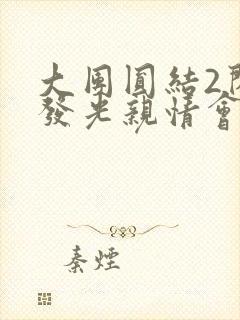 大團圓結2
發光親情會
秦煙